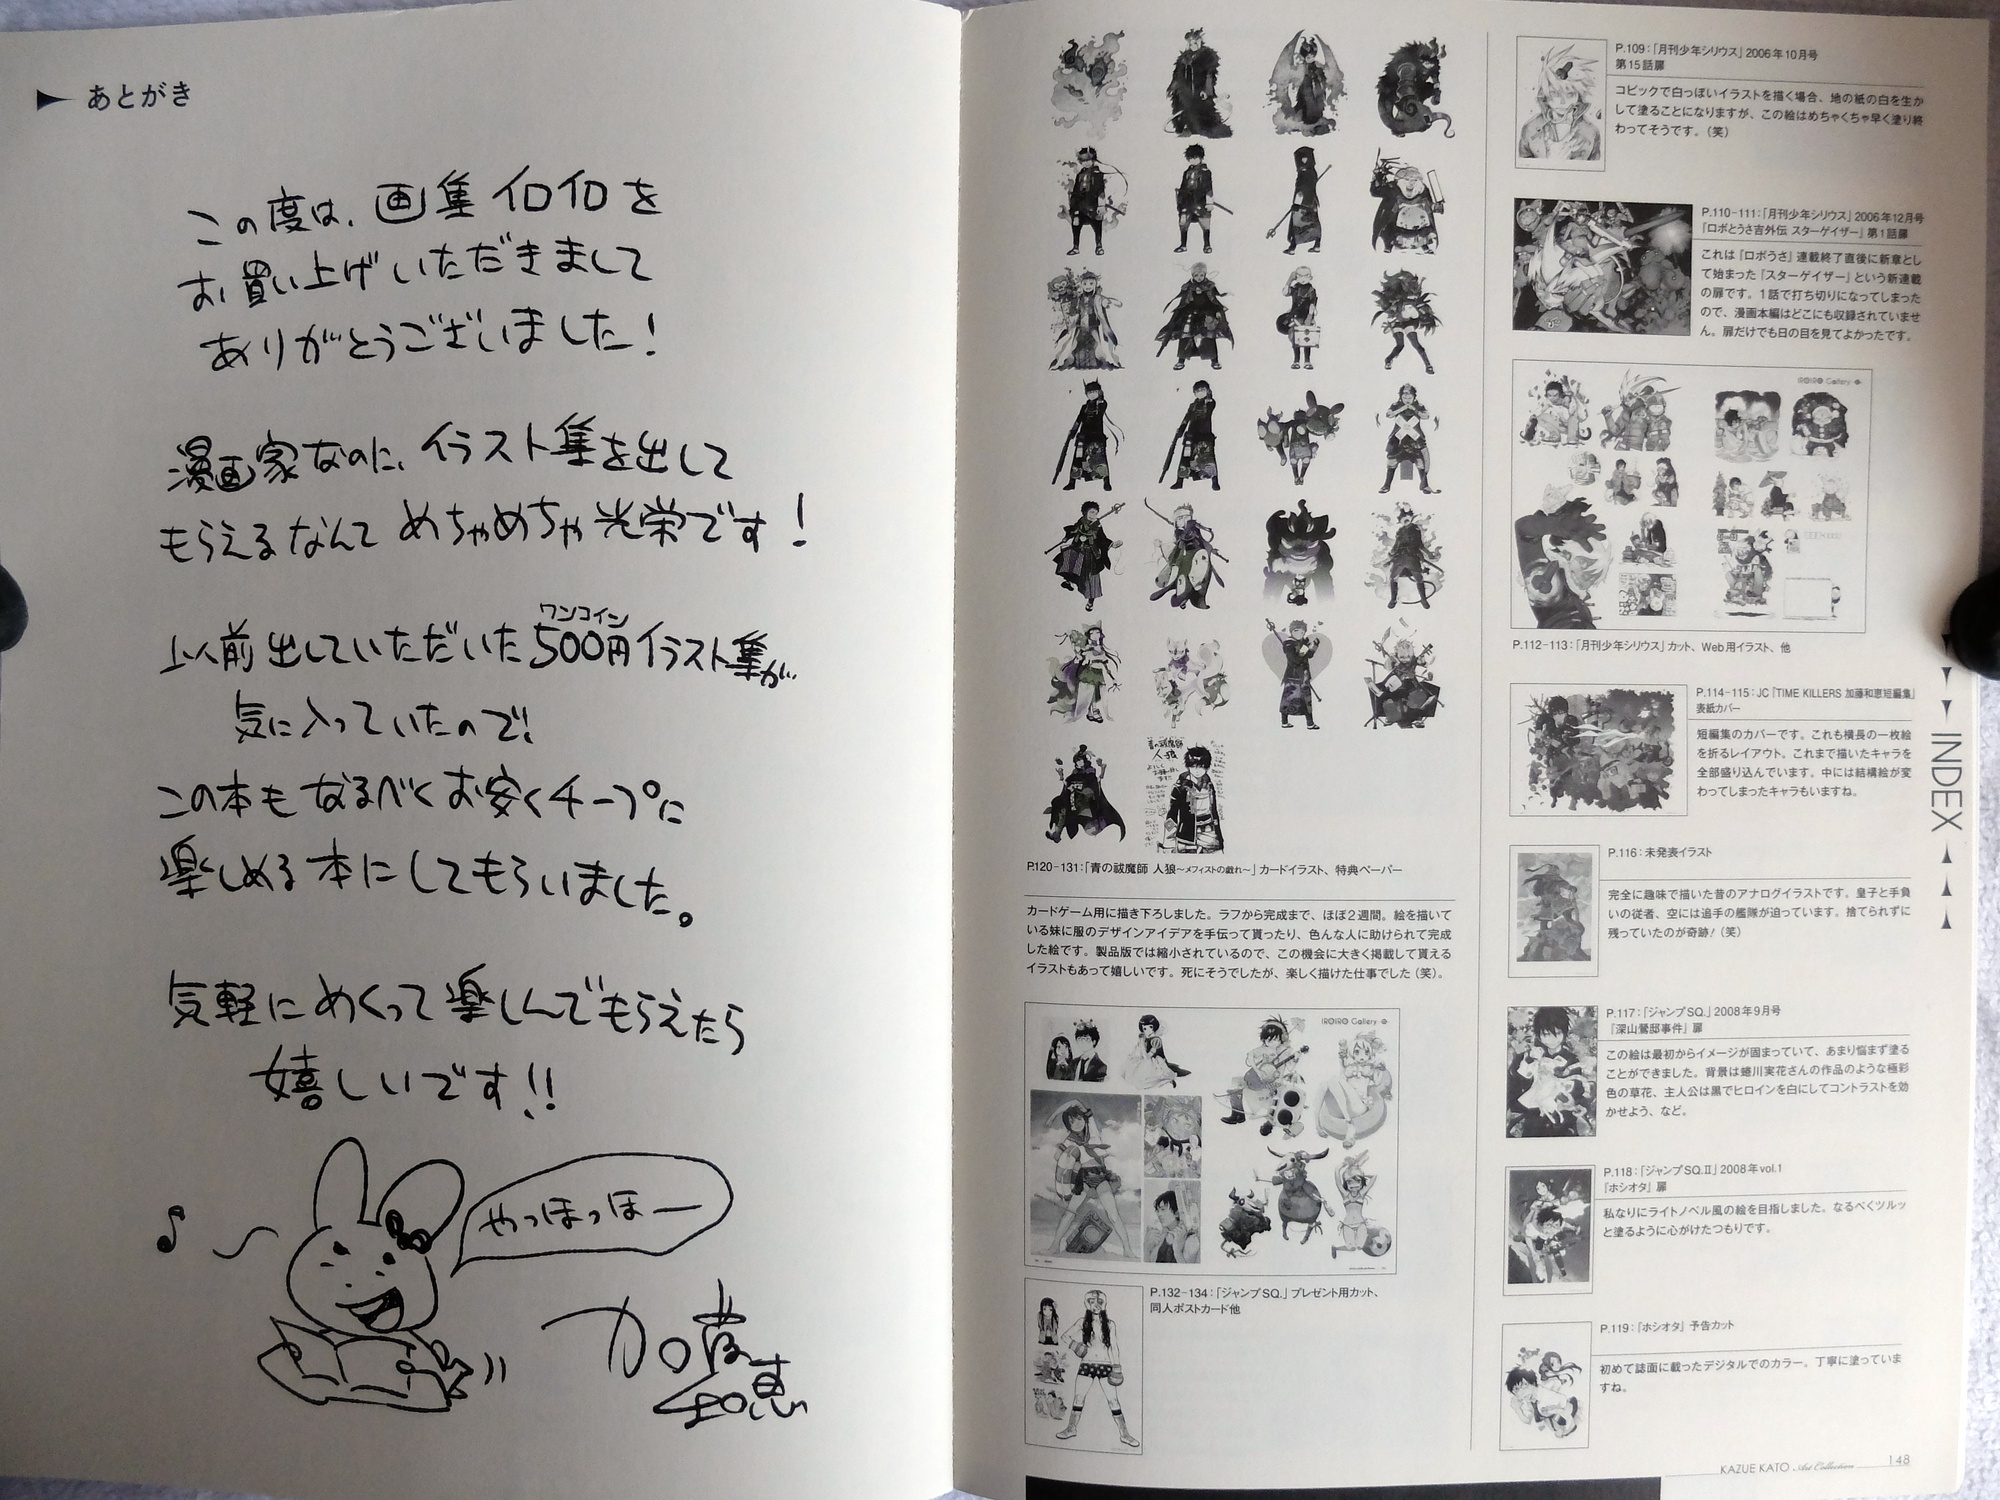 あとがき
この度は、画集イロイロを
お買い上げいただきまして
ありがとうございました!
漫画家なのに、イラスト集を出して
もらえるなんて めちゃめちゃ光栄です!
以前出していただいた500円イラスト集が
ワンコイン
気に入っていたので!
この本も なるべくお安くチープに
楽しめる本にしてもらいました。
気軽にめくって楽しんでもらえたら
嬉しいです!!
やっほっほー
加藤
和恵
青の祓魔師
人狼
P.120-131:「青の祓魔師 人狼〜メフィストの戯れ〜」カードイラスト、特典ペーパー
カードゲーム用に描き下ろしました。ラフから完成まで、ほぼ2週間。絵を描いて
いる妹に服のデザインアイデアを手伝って貰ったり、色んな人に助けられて完成
した絵です。製品版では縮小されているので、この機会に大きく掲載して貰える
イラストもあって嬉しいです。死にそうでしたが、楽しく描けた仕事でした(笑)。
IROIRO Gallery
P.132-134:「ジャンプSQ.」プレゼント用カット、
同人ポストカード他
P.109:「月刊少年シリウス」2006年10月号
第15話扉
コピックで白っぽいイラストを描く場合、地の紙の白を生か
して塗ることになりますが、この絵はめちゃくちゃ早く塗り終
わってそうです。(笑)
P.110-111:「月刊少年シリウス」2006年12月号
『ロボとうさ吉外伝 スターゲイザー』第1話扉
これは『ロボうさ』連載終了直後に新章とし
て始まった『スターゲイザー』という新連載
の扉です。1話で打ち切りになってしまった
ので、漫画本編はどこにも収録されていませ
ん。扉だけでも日の目を見てよかったです。
IROIRO Gallery
P.112-113:「月刊少年シリウス」カット、Web用イラスト、他
P.114-115:JC『TIME KILLERS 加藤和恵短編集』
表紙カバー
短編集のカバーです。これも横長の一枚絵
を折るレイアウト。これまで描いたキャラを
全部盛り込んでいます。中には結構絵が変
わってしまったキャラもいますね。
P.116:未発表イラスト
完全に趣味で描いた昔のアナログイラストです。皇子と手負
いの従者、空には追手の艦隊が迫っています。捨てられずに
残っていたのが奇跡!(笑)
P.117:「ジャンプSQ.」2008年9月号
『深山鶯邸事件』扉
この絵は最初からイメージが固まっていて、あまり悩まず塗る
ことができました。背景は蜷川実花さんの作品のような極彩
色の草花、主人公は黒でヒロインを白にしてコントラストを効
かせよう、など。
P.118:「ジャンプSQ.II」2008年vol.1
『ホシオタ』扉
私なりにライトノベル風の絵を目指しました。なるべくツルッ
と塗るように心がけたつもりです。
P.119:『ホシオタ』予告カット
初めて誌面に載ったデジタルでのカラー。丁寧に塗っていま
すね。
INDEX
KAZUE KATO Art Collection
148